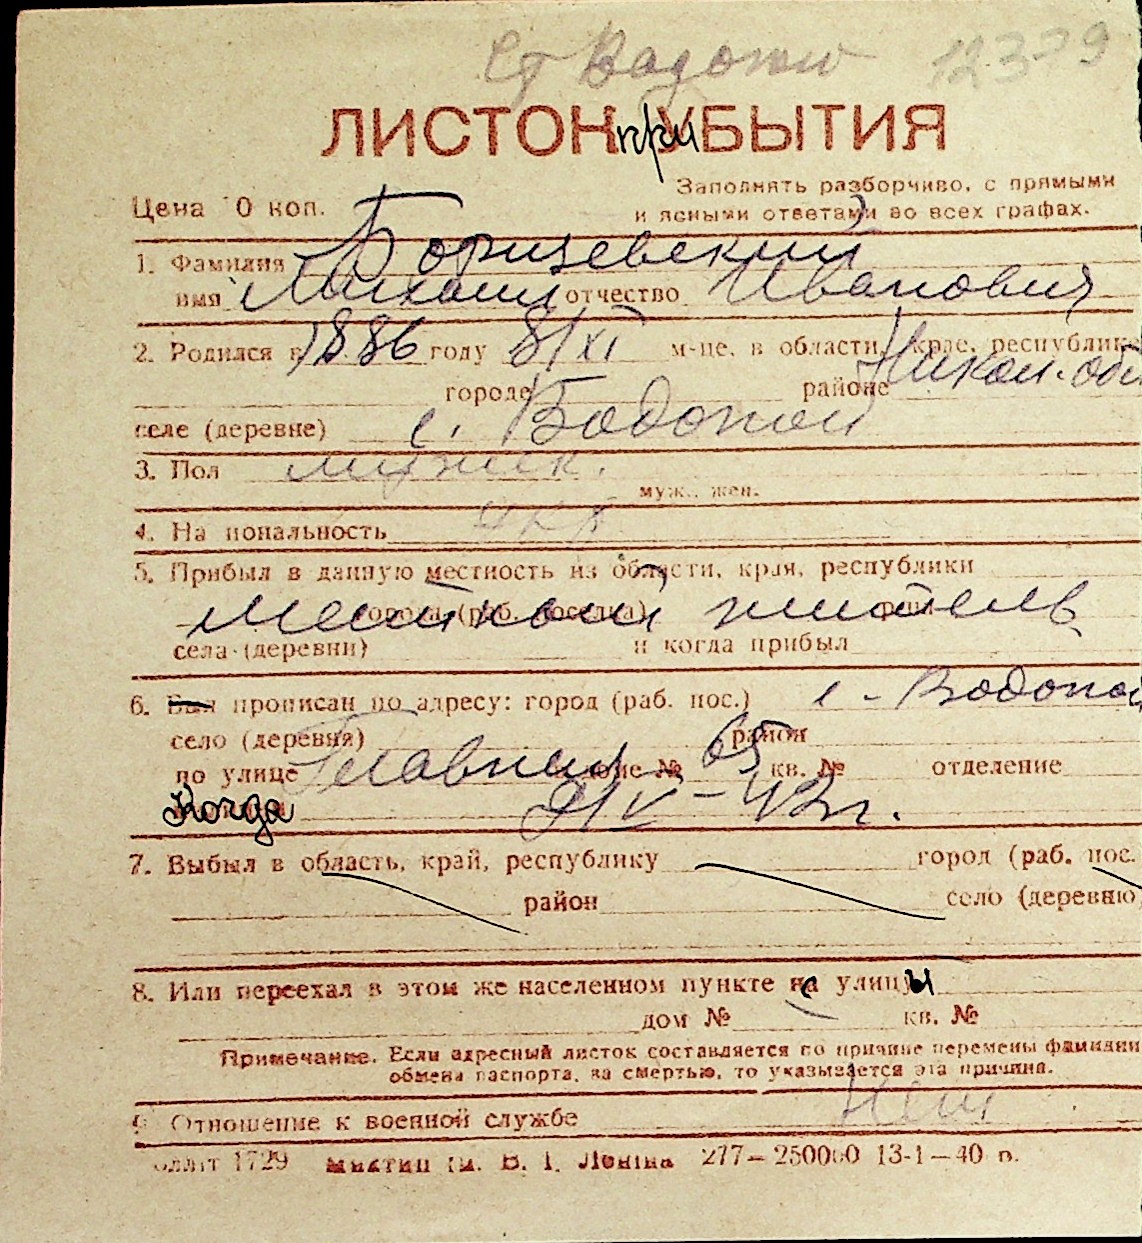 Ст Водопой 12379
ЛИСТОК при УБЫТИЯ
Цена 10 коп.
Заполнять разборчиво, с прямыми
и ясными ответами во всех графах.
1. Фамилия Борщевский
имя Михаил отчество Иванович
2. Родился в 1886 году 8/XI м-це, в области, крае, республике Никол. обл
городе районе
селе (деревне) с. Водопой
3. Пол мужск.
муж., жен.
4. Национальность укр
5. Прибыл в данную местность из области, края, республики
города (раб. поселка) Местный житель
села (деревни) и когда прибыл
6. Был прописан по адресу: город (раб. пос.) с - Водопой
село (деревня) район
по улице Главная доме № 65 кв. № отделение
Когда 21 V - 42 г.
7. Выбыл в область, край, республику город (раб. пос.
район село (деревню)
8. Или переехал в этом же населенном пункте с улицы
дом № кв. №
Примечание. Если адресный листок составляется по причине перемены фамилии
обмена паспорта, за смертью, то указывается эта причина.
9. Отношение к военной службе Нет
1729 ім. В. І. Леніна 277—250000 13-1—40 р.